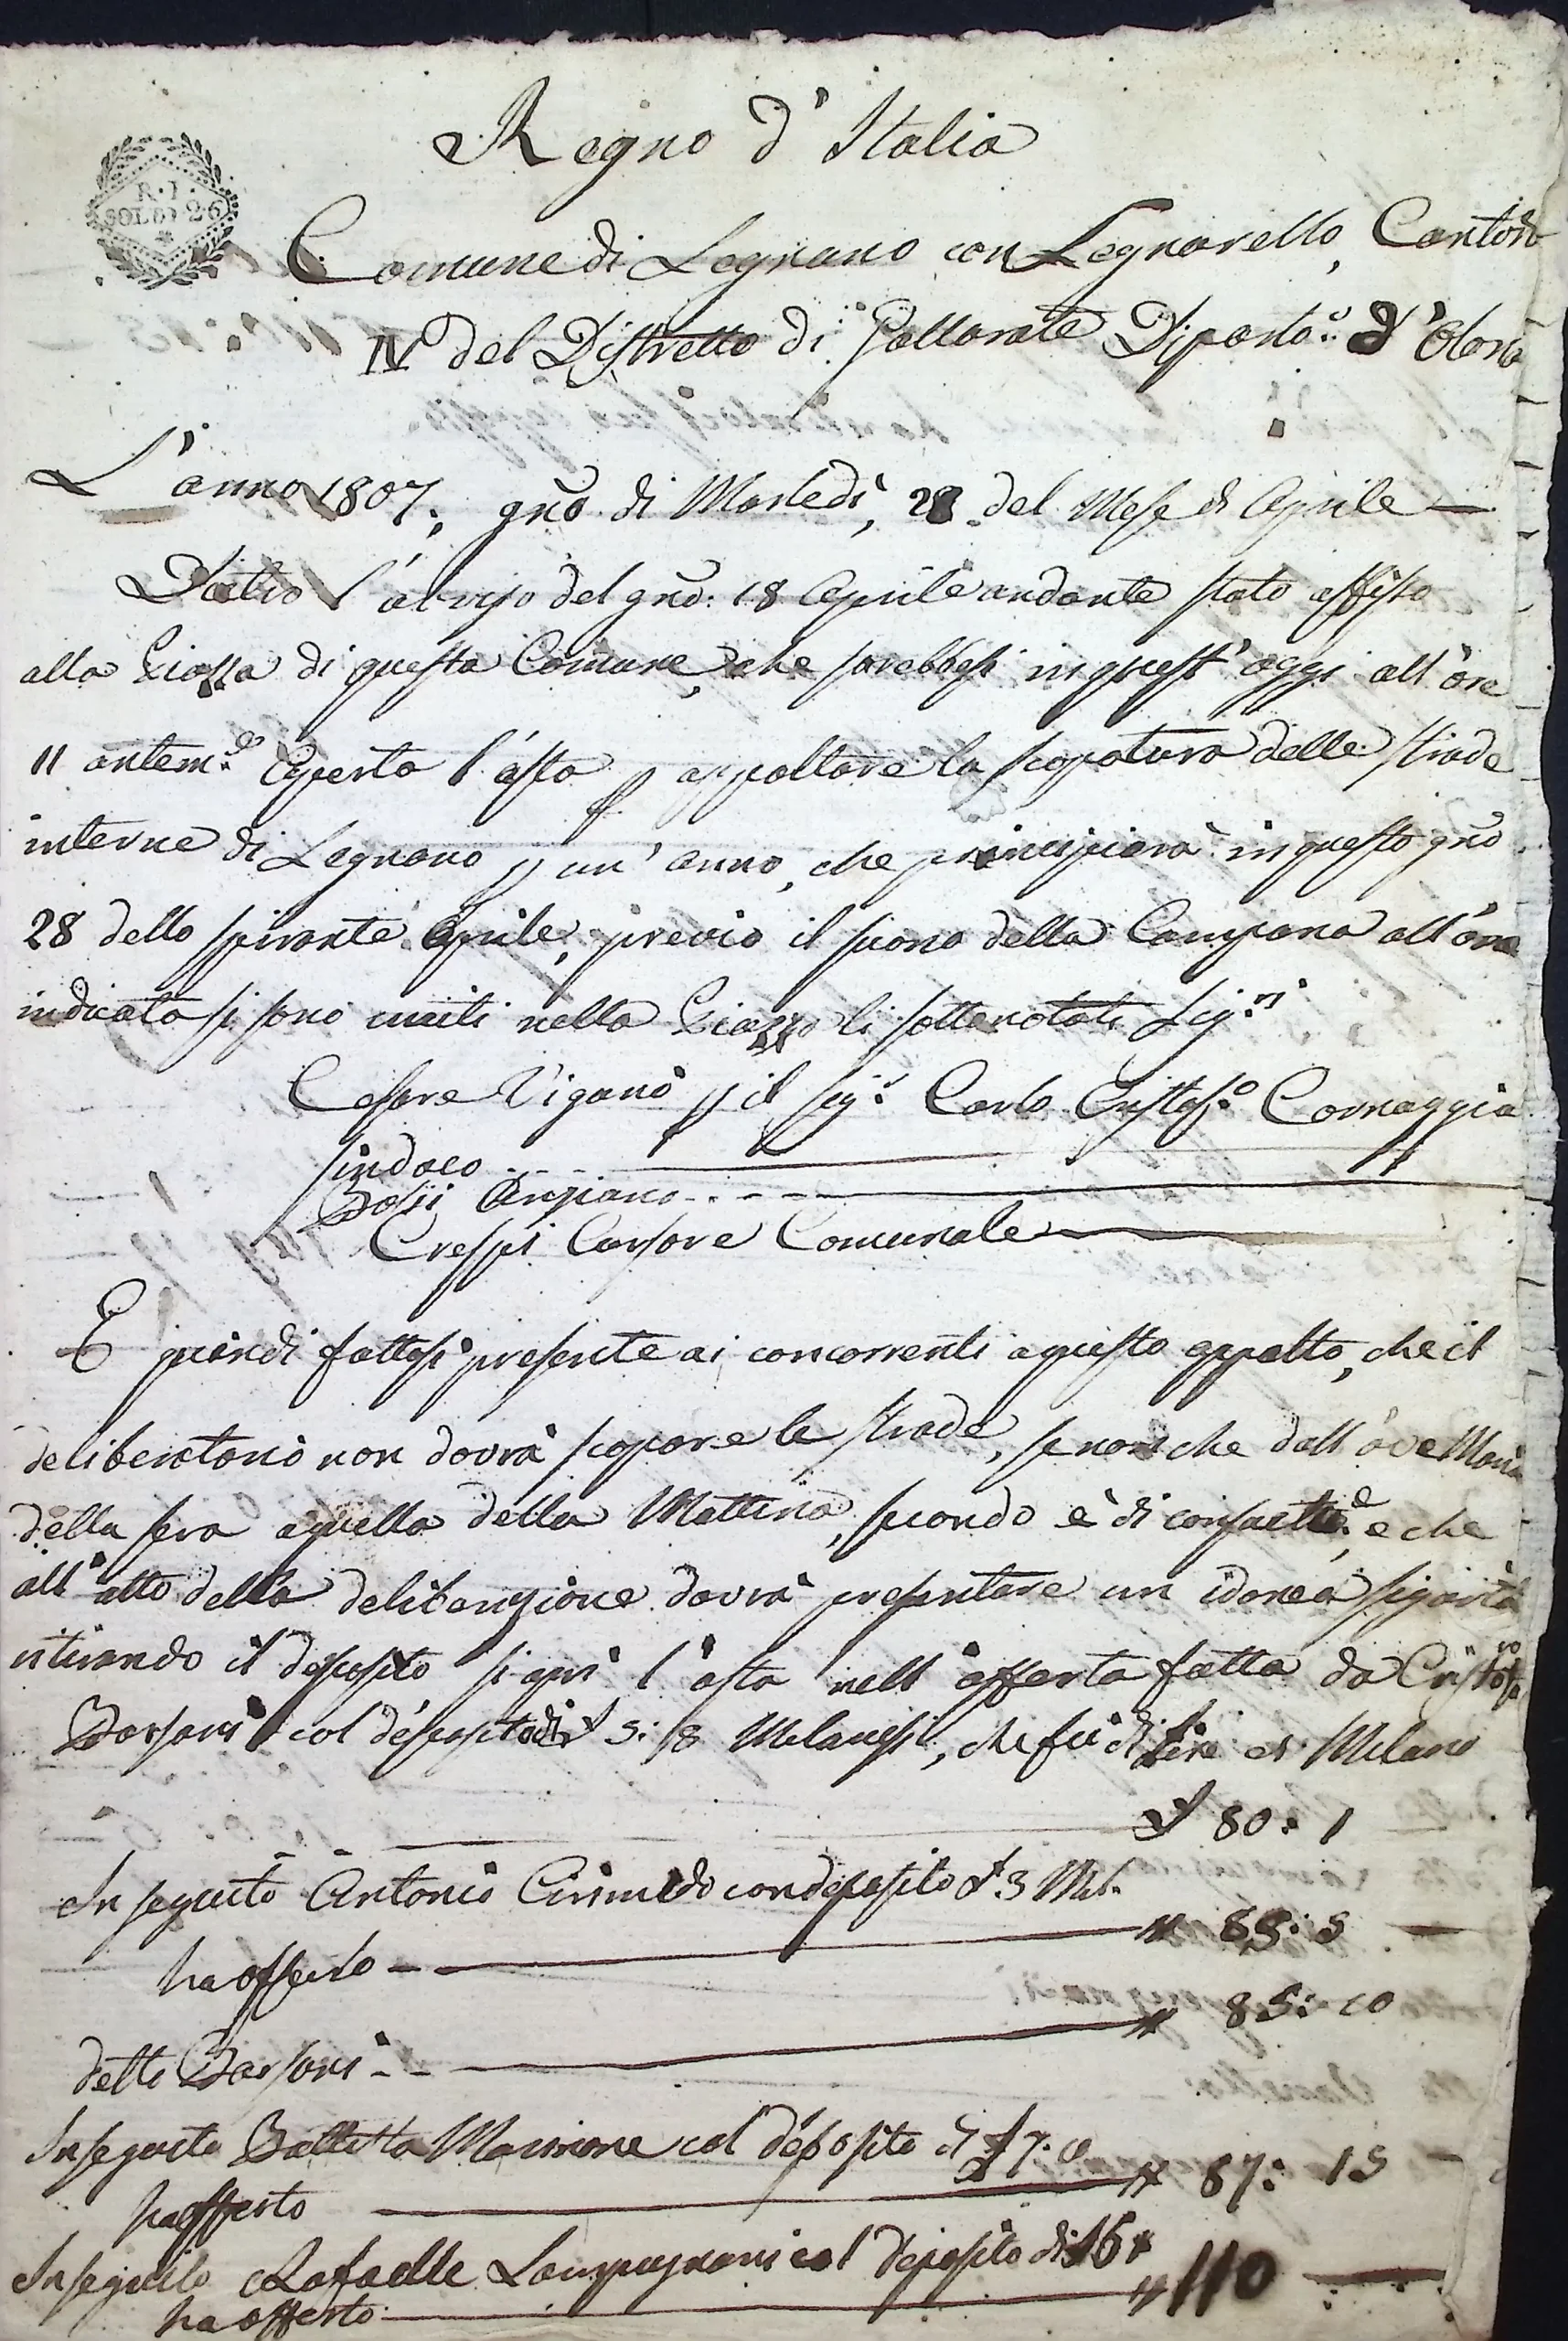 Regno d'Italia
R. I.
SOLDI 26
Comune di Legnano con Legnarello, Canton
IV del Distretto di Gallarate Diparto: d'Olona
L'anno 1807; gno. di Martedì, 28 del Mese di Aprile
Dietro l'avviso del gno: 18 Aprile andante stato affisso
alla Piazza di questa Comune, che sarebbesi in quest'oggi all'ore
11 antem.e aperta l'asta p appaltare la scopatura delle strade
interne di Legnano p un'anno, che principiarà in questo gno
28 dello spirante Aprile, previo il suono della Campana all'ora
indicata si sono uniti nella Piazza li sottonotati Sig.ri
Cesare Viganò p il Sig.r Carlo Cristof.o Cornaggia
Sindaco
Bossi Anziano
Crespi Cursore Comunale
E quindi fattosi presente ai concorrenti a questo appalto, che il
deliberatario non dovrà scopare le strade, se non che dall'ave Maria
della sera a quella della Mattina, secondo è di consuet.e, e che
all'atto della deliberazione dovrà presentare un idonea sigurtà
ritirando il deposito si aprì l'asta nell'offerta fatta da Cristofo
Borsani col deposito di £ 5: 8 Milanesi, che fu di Lire di Milano
£ 80: 1
In seguito Antonio con deposito £ 3 Mil.
ha offerto " 85: 5
detto Borsani " 85: 10
In seguito Battista col deposito di £ 7: 10
ha offerto " 87: 15
In seguito Rafaelle Lampugnani col deposito di 16
ha offerto " 110